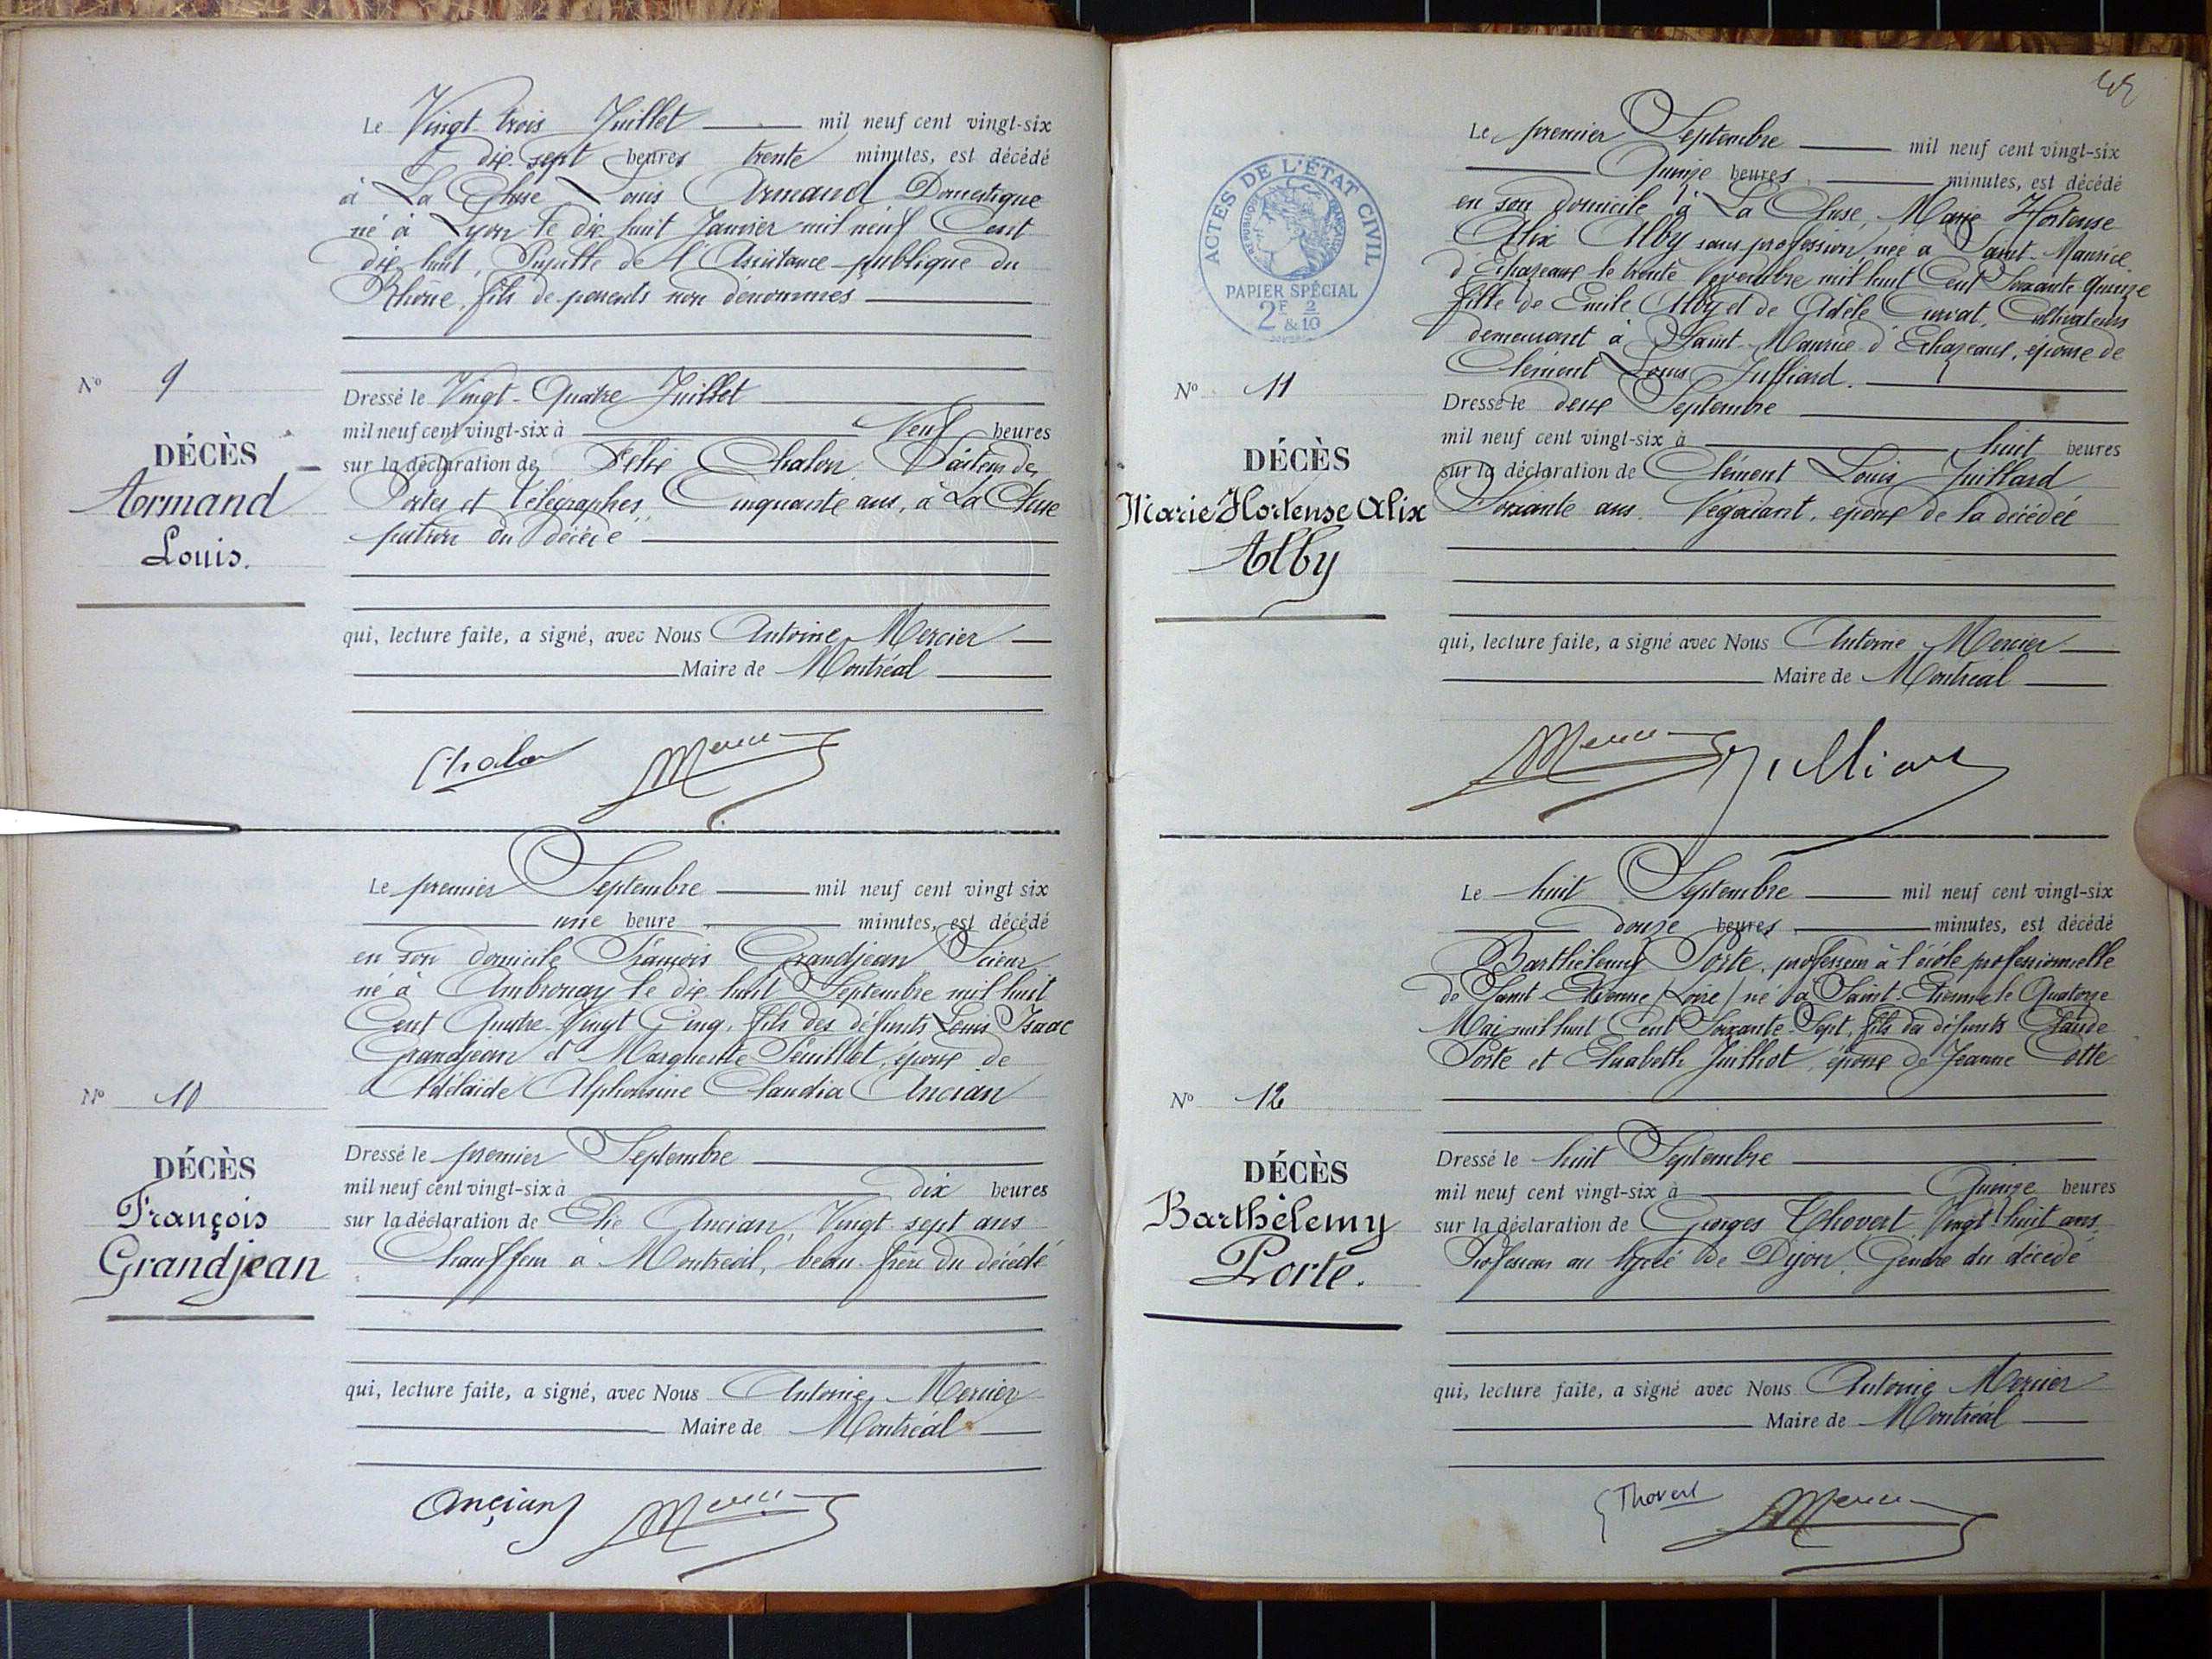 Le Vingt-trois Juillet mil neuf cent vingt-six
à dix-sept heures trente minutes, est décédé
à La Cluse Louis Armand Domestique
né à Lyon le dix huit Janvier mil neuf Cent
dix huit, Pupille de l'Assistance publique du
Rhône, fils de parents non dénommés
N° 9
DÉCÈS
Armand
Louis.
Dressé le Vingt-Quatre Juillet
mil neuf cent vingt-six à Neuf heures
sur la déclaration de Félix Chalon Facteur des
Postes et Télégraphes, Cinquante ans, à La Cluse
patron du décédé
qui, lecture faite, a signé, avec Nous Antoine Mercier
Maire de Montréal
Chalon Mercier
Le premier Septembre mil neuf cent vingt six
une heure minutes, est décédé
en son domicile François Grandjean Scieur
né à Ambronay le dix huit Septembre mil huit
Cent Quatre-Vingt Cinq, fils des défunts Louis Isaac
Grandjean et Marguerite Feuillet, époux de
Adélaïde Alphonsine Claudia Ancian
N° 10
DÉCÈS
François
Grandjean
Dressé le premier Septembre
mil neuf cent vingt-six à dix heures
sur la déclaration de Elie Ancian, Vingt sept ans
Chauffeur à Montréal, beau-frère du décédé
qui, lecture faite, a signé, avec Nous Antoine Mercier
Maire de Montréal
Ancian Mercier
ACTES DE L'ÉTAT CIVIL
RÉPUBLIQUE FRANÇAISE
PAPIER SPÉCIAL
2F 2
& 10
Le premier Septembre mil neuf cent vingt-six
Quinze heures minutes, est décédé
en son domicile à La Cluse, Marie Hortense
Alix Alby sans profession, née à Saint-Maurice
d'Echazeaux le trente Novembre mil huit Cent Soixante Quinze
fille de Emile Alby et de Adèle Curvat, Cultivateurs
demeurant à Saint-Maurice d'Echazeaux, épouse de
Clément Louis Julliard.
N° 11
DÉCÈS
Marie Hortense Alix
Alby
Dressé le deux Septembre
mil neuf cent vingt-six à huit heures
sur la déclaration de Clément Louis Juillard
Soixante ans Négociant, époux de la décédée
qui, lecture faite, a signé avec Nous Antoine Mercier
Maire de Montréal
Mercier Julliard
Le huit Septembre mil neuf cent vingt-six
douze heures minutes, est décédé
Barthélemy Porte, professeur à l'école professionnelle
de Saint-Etienne (Loire) né à Saint-Etienne le Quatorze
Mai mil huit Cent Soixante-Sept, fils des défunts Claude
Porte et Elisabeth Juilliot, époux de Jeanne Cotte
N° 12
DÉCÈS
Barthèlemy
Porte.
Dressé le huit Septembre
mil neuf cent vingt-six à Quinze heures
sur la déclaration de Georges Thovert, Vingt huit ans
Professeur au lycée de Dijon, Gendre du décédé
qui, lecture faite, a signé avec Nous Antoine Mercier
Maire de Montréal
G Thovert Mercier